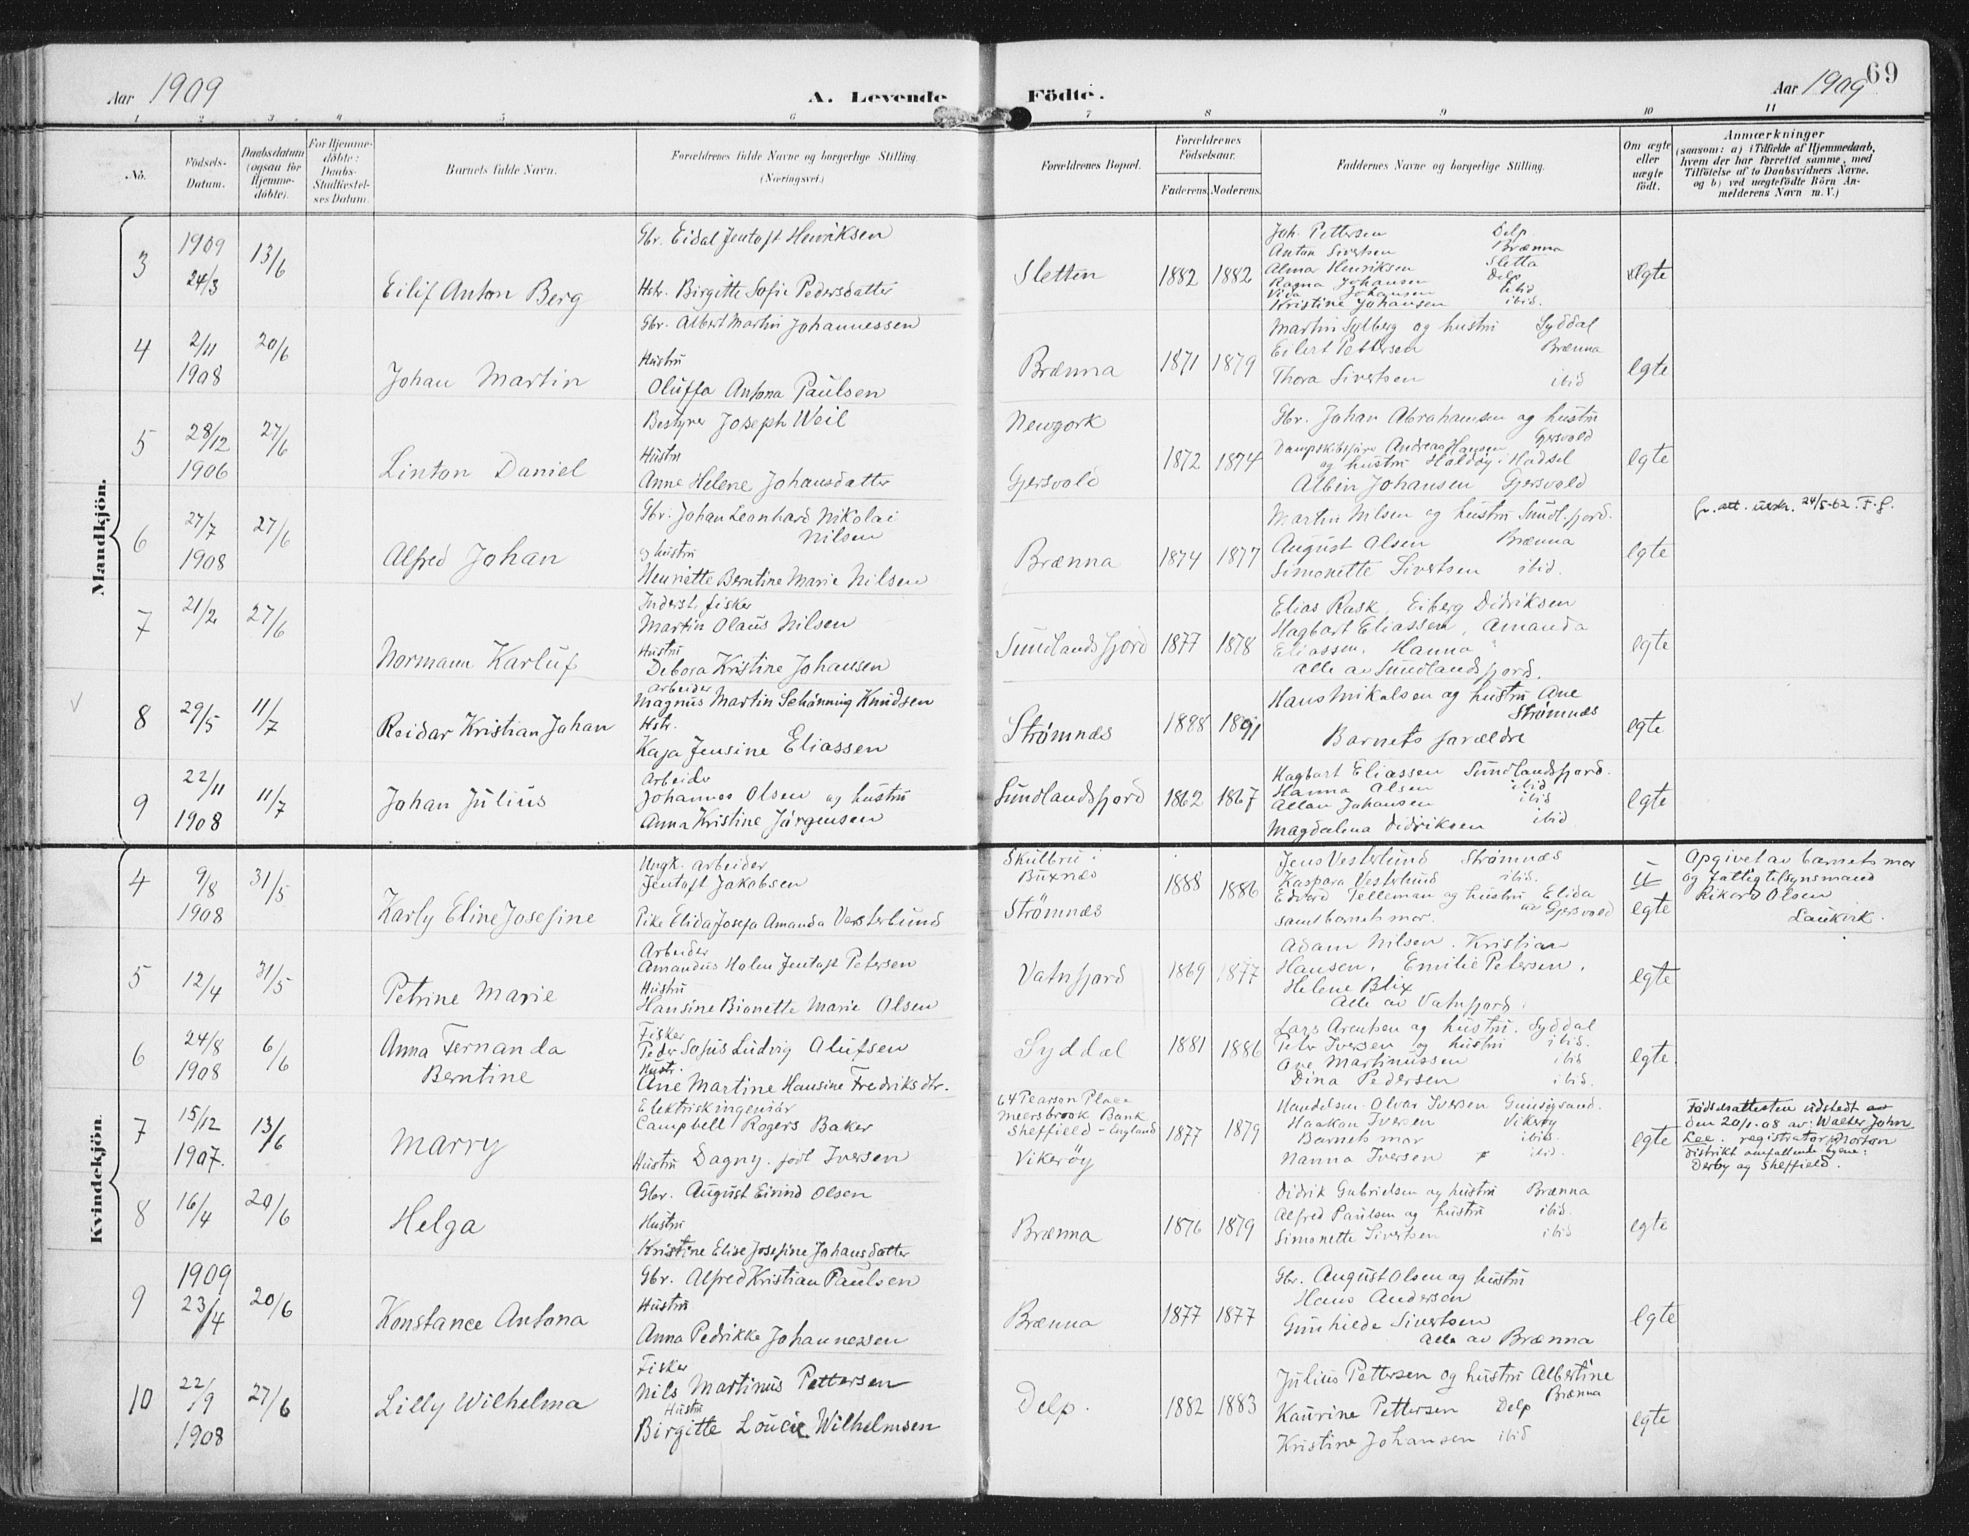 Aar 1909
A. Levende Födte.
Aar 1909
69
1 2 3 4 5 6 7 8 9 10 11
No.
Födsels-Datum.
Daabsdatum (ogsaa for Hjemmedöbte).
For Hjemmedöbte: Daabs-Stadfæstelses Datum.
Barnets fulde Navn.
Forældrenes fulde Navne og borgerlige Stilling. (Næringsvei.)
Forældrenes Bopæl.
Forældrenes Födselsaar.
Faderens. Moderens.
Faddernes Navne og borgerlige Stilling.
Om ægte eller uægte födt.
Anmærkninger
(saasom: a) i Tilfælde af Hjemmedaab, hvem der har forrettet samme, med Tilföielse af to Daabsvidners Navne, og b) ved uægtefödte Börn Anmelderens Navn m. V.)
Mandkjön.
3
1909
24/3
13/6
Eilif Anton Berg
Gbr. Eidal Jentoft Henriksen
Hstr. Birgitte Sofie Pedersdatter
Sletten
1882 1882
Joh. Pettersen Delp
Anton Sivertsen Brænna
Almar Henriksen Sletta
Ragna Johansen Delp
Vida Johansen ibid
Kristine Johansen ibid.
egte
4
2/11
1908
20/6
Johan Martin
Gbr. Albert Martin Johannessen
Hustru
Oluffa Antona Paulsen
Brænna
1871 1879
Martin Sylberg og hustru Syddal
Eilert Pettersen Brænna
Thora Sivertsen ibid
egte
5
28/12
1906
27/6
Linton Daniel
Bestyrer Joseph Weil
Hustru
Anne Helene Johansdatter
Newyork
Gjersvold
1872 1874
Gbr. Johan Abrahamsen og hustru
Gjersvold
Dampskibsfører Andreas Hansen
og hustru Haldøy. Hadsel
Albin Johansen Gjersvold
egte
6
27/7
1908
27/6
Alfred Johan
Gbr. Johan Leonhard Nikolai
Nilsen
og hustru
Henriette Berntine Marie Nilsen
Brænna
1874 1877
Martin Nilsen og hustru Sundl.fjord.
August Olsen Brænna
Simonette Sivertsen ibid.
egte
fr. att. utskr. 24/5-62. F.f.
7
21/2
27/6
Normann Karluf
Inderst, fisker
Martin Olaus Nilsen
Hustru
Debora Kristine Johansen
Sundlandsfjord
1877 1878
Elias Rask, Eiberg Didriksen
Hagbart Eliassen, Amanda
Eliassen, Hanna "
Alle av Sundlandsfjord.
egte
8
29/5
11/7
Reidar Kristian Johan
Arbeider
Magnus Martin Schønning Knudsen
Hstr.
Kaja Jensine Eliassen
Strømnæs
1888 1891
Hans Mikalsen og hustru Ane
Strømnæs
Barnets forældre
egte
9
22/11
1908
11/7
Johan Julius
Arbeider
Johannes Olsen og hustru
Anna Kristine Jørgensen
Sundlandsfjord
1862 1867
Hagbart Eliassen Sundlandsfjord.
Hanna Olsen ibid
Allan Johansen ibid
Magdalena Didriksen ibid
egte
Kvindekjön.
4
9/8
1908
31/5
Karly Eline Josefine
Ungk. arbeider
Jentoft Jakobsen
Pike Elida Josefa Amanda Vesterlund
Skulbru i
Buxnæs
Strømnæs
1888 1886
Jens Vesterlund Strømnæs
Kaspara Vesterlund ibid.
Edvard Telleman og hustru Elida
av Gjersvold
samt barnets mor.
u
egte
Opgivet av barnets mor
og fattigtilsynsmand
Rikard Olsen
Laukvik.
5
12/4
31/5
Petrine Marie
Arbeider
Amandus Holm Jentoft Petersen
Hustru
Hansine Bionette Marie Olsen
Vatnfjord
1869 1877
Adam Nilsen. Kristian
Hansen, Emilie Petersen,
Helene Blix
Alle av Vatnfjord.
egte
6
24/8
1908
6/6
Anna Fernanda
Berntine
Fisker
Peder Sofus Ludvig Olufsen
Hustr.
Ane Martine Hansine Fredriksdtr.
Syddal
1881 1886
Lars Arentsen og hustru. Syddal
Petr Iversen og hustru ibid.
Ove Martinussen ibid
Dina Pedersen ibid.
egte
7
15/12
1907.
13/6
Marry
Elektriskingeniør
Campbell Rogers Baker
Hustru Dagny. født Iversen
64 Pearson Place
Meersbrook Bank
Sheffield - England
Vikerøy
1877 1879
Handelsm. Olvar Iversen Gimsøysand.
Haakon Iversen Vikerøy
Barnets mor ibid.
Nanna Iversen ibid.
egte
Fødselsattesten udstedt
den 20/1-08 av Walter John
Lee. registrator Norton
Distrikt omfattende byene:
Derby og Sheffield.
8
16/4
20/6
Helga
Gbr. August Eivind Olsen
Hustru
Kristine Elise Josefine Johansdatter
Brænna
1876 1879
Didrik Gabrielsen og hustru Brænna
Alfred Paulsen og hustru ibid.
Simonette Sivertsen ibid
egte
9
1909
23/4
20/6
Konstance Antona
Gbr. Alfred Kristian Paulsen
Hustru
Anna Pedrikke Johannessen
Brænna
1877 1877
Gbr. August Olsen og hustru
Hans Andersen
Gunhilde Sivertsen
Alle av Brænna
egte
10
22/9
1908
27/6
Lilly Wilhelma
Fisker
Nils Martinus Pettersen
Hustru
Birgitte Loucie Wilhelmsen
Delp.
1882 1883
Julius Pettersen og hustru Albertine
Brænna
Kaurine Pettersen Delp
Kristine Johansen ibid
egte